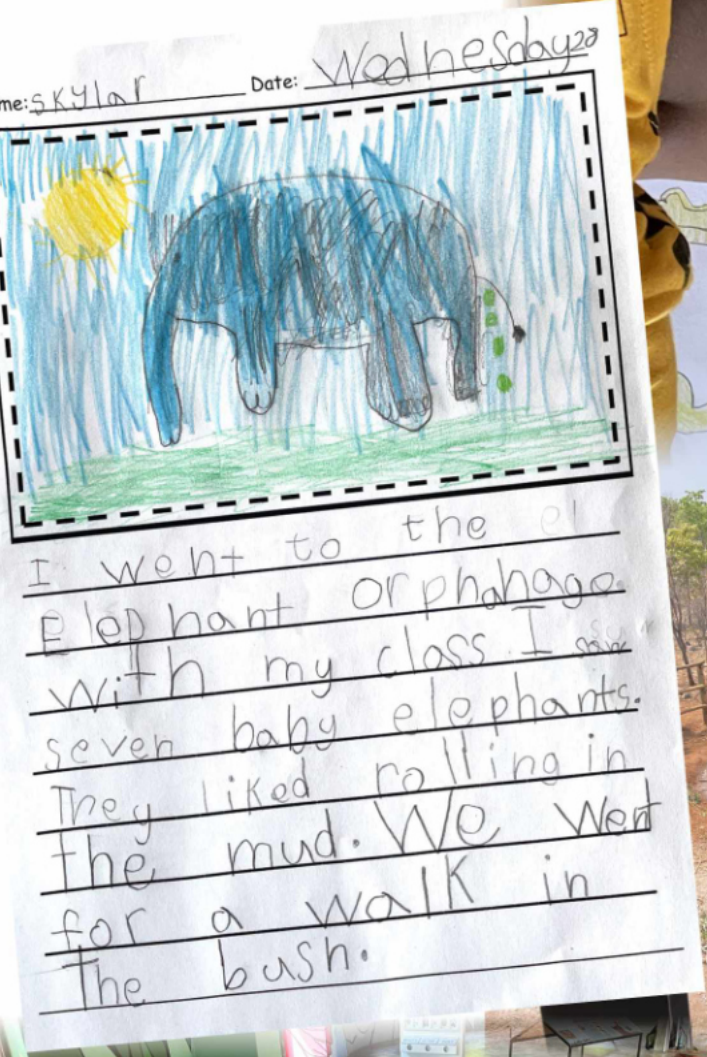 me: Skylar Date: Wednesday 28
I went to the el
Elephant orphanage.
with my class. I saw
seven baby elephants.
They liked rolling in
the mud. We went
for a walk in
The bush.